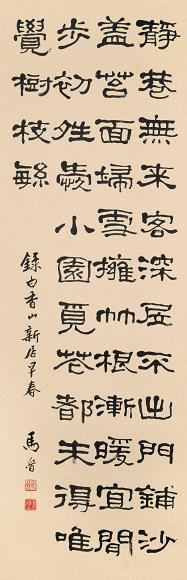 靜巷無来客深居不出門鋪沙
盖苔面埽雪擁竹根漸暖宜閒
步初夝愛小園覓花都未得唯
覺樹枝緐
錄白香山新居早春
馬晉